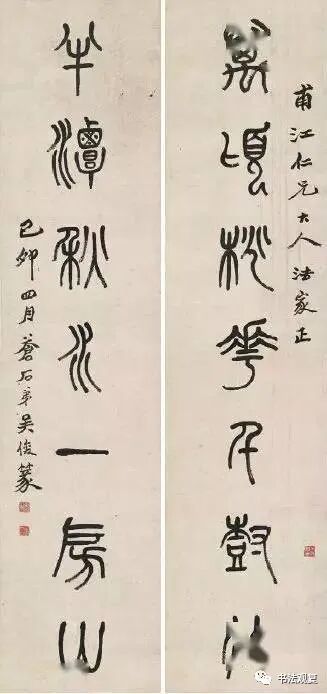 甫江仁兄大人法家正
萬頃桃華千尌
半潭秋水一房山
己卯四月蒼石弟吳俊篆
书法观复